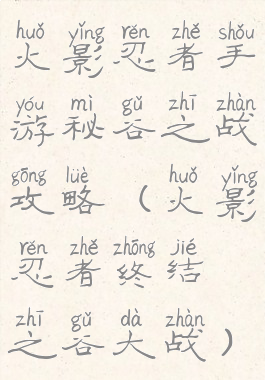 huǒ yǐng rěn zhě shǒu
火影忍者手
yóu mì gǔ zhī zhàn
游秘谷之战
gōng lüè huǒ yǐng
攻略（火影
rěn zhě zhōng jié
忍者终结
zhī gǔ dà zhàn
之谷大战）